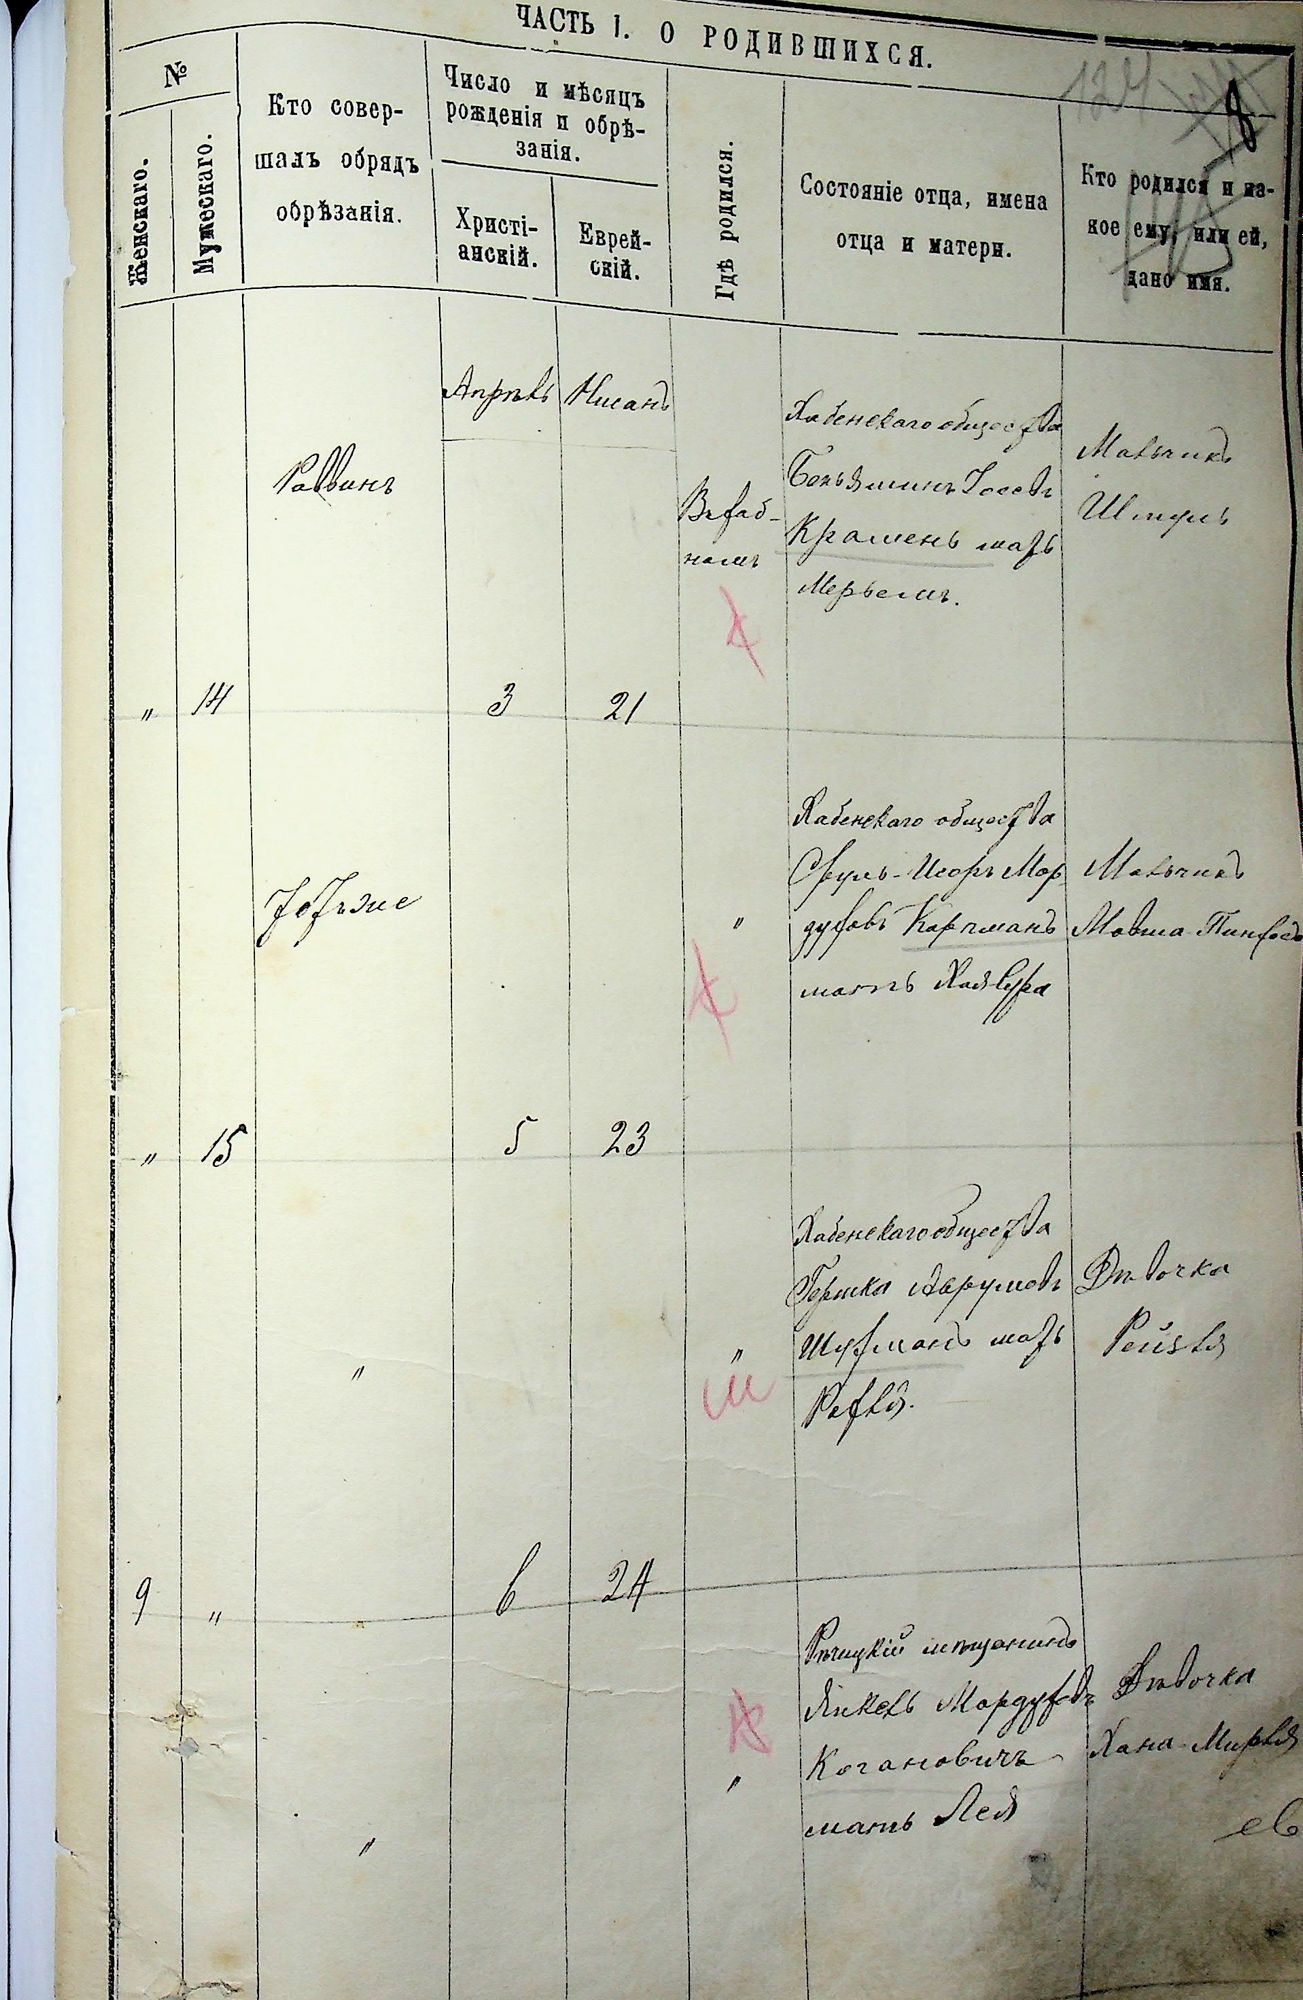 ЧАСТЬ I. О РОДИВШИХСЯ.
124
8
№
Женскаго.
Мужескаго.
Кто совер-
шалъ обрядъ
обрѣзанія.
Число и мѣсяцъ
рожденія и обрѣ-
занія.
Христі-
анскій.
Еврей-
скій.
Гдѣ родился.
Состояніе отца, имена
отца и матери.
Кто родился и ка-
кое ему, или ей,
дано имя.
Раввинъ
Апрѣль
Нисанъ
Хабенскаго общества
Беньяминъ Іосевъ
мать
Мерьемъ.
Мальчикъ
Шмуль
" 14 3 21
Тотъ же
"
Хабенскаго общества
Сруль-Исоръ Мор
духовъ Карпманъ
мать Хая Сура
Мальчикъ
Мовша-Пинхосъ
" 15 5 23
"
"
Хабенскаго общества
Гершка Аврумовъ
Шухманъ мать
Рахля.
Дѣвочка
Рейзля
9 " 6 24
"
"
Рѣчицкій мѣщанинъ
Янкель Мордуховъ
Когановичъ
мать Лея
Дѣвочка
Хана-Мирля